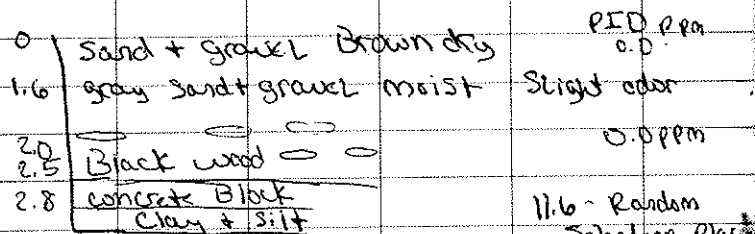 PID ppm
0 Sand + gravel Brown dry 0.0
1.6 gray sand + gravel moist Slight odor
2.0 0.0 ppm
2.5 Black wood
2.8 concrete Block 11.6 - Random
Clay + Silt Selection